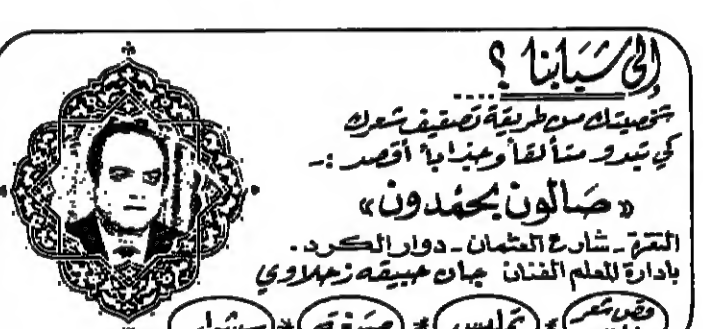 إلى شبابنا ؟
شخصيتك من طريقة تصفيف شعرك
كي تبدو متألقاً وجذاباً أقصد :-
«صالون بحمدون»
النقرة - شارع العثمان - دوار الكرد -
بادارة المعلم الفنان جان حبيقه زحلاوي
قص شعر * تمليس * صبغه * سشوار